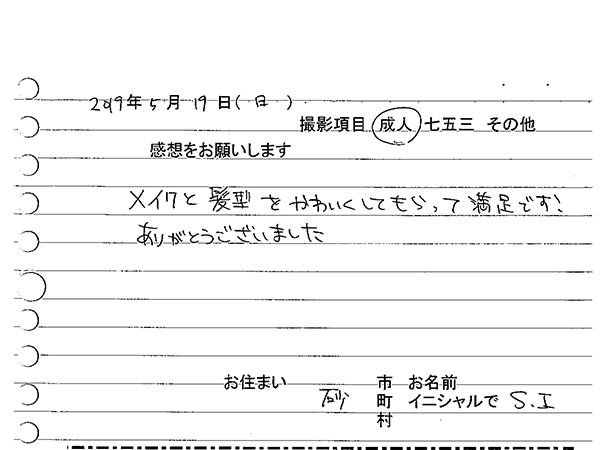 2019年5月19日(日)
撮影項目 成人 七五三 その他
感想をお願いします
メイクと髪型をかわいくしてもらって満足です!
ありがとうございました
お住まい 市 お名前
町 イニシャルで S.I
村